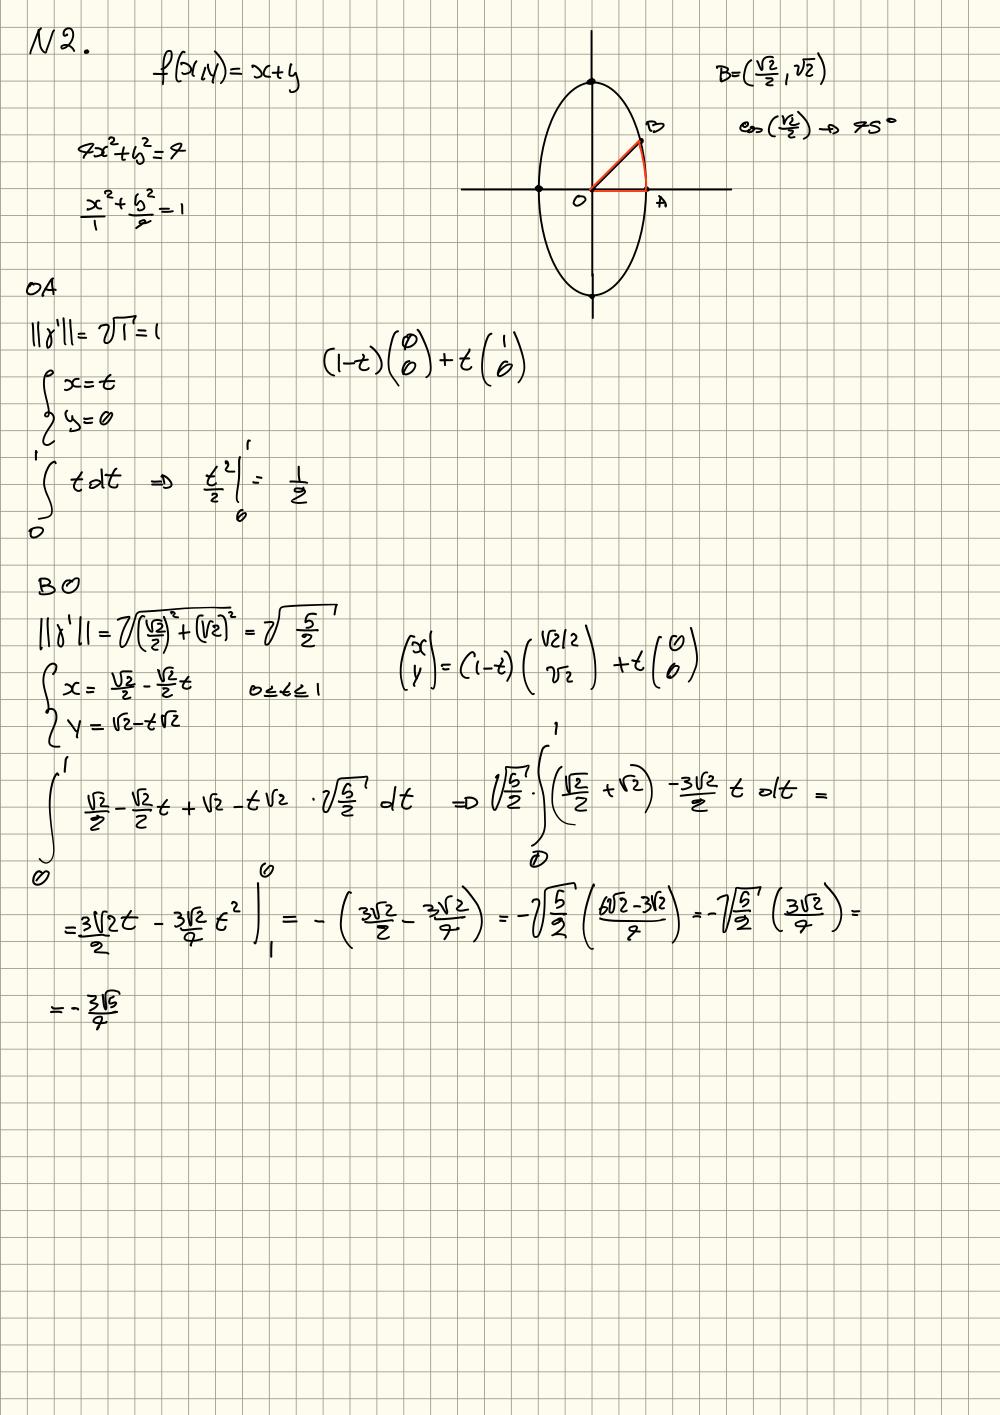 N2.
f(x,y)=x+y
B=(√2/2, √2)
cos(√2/2) → 45°
4x²+y²=4
x²/1+y²/4=1
B
O
A
OA
||γ'||=√1=1
(1-t)(0 0)+t(1 0)
{x=t
y=0
∫₀¹ t dt ⇒ t²/2|₀¹= 1/2
BO
||γ'||=√((√2/2)²+(√2)²)=√(5/2)
(x y)=(1-t)(√2/2 √2)+t(0 0)
{x= √2/2-√2/2t 0≤t≤1
y=√2-t√2
∫₀¹ √2/2-√2/2t+√2-t√2 ·√(5/2) dt ⇒ √(5/2)·∫₀¹(√2/2+√2)-3√2/2 t dt =
=3√2/2t - 3√2/4 t²|₁⁰ = -(3√2/2-3√2/4)=-√(5/2)((6√2-3√2)/4)=-√(5/2)(3√2/4)=
=-3√5/4